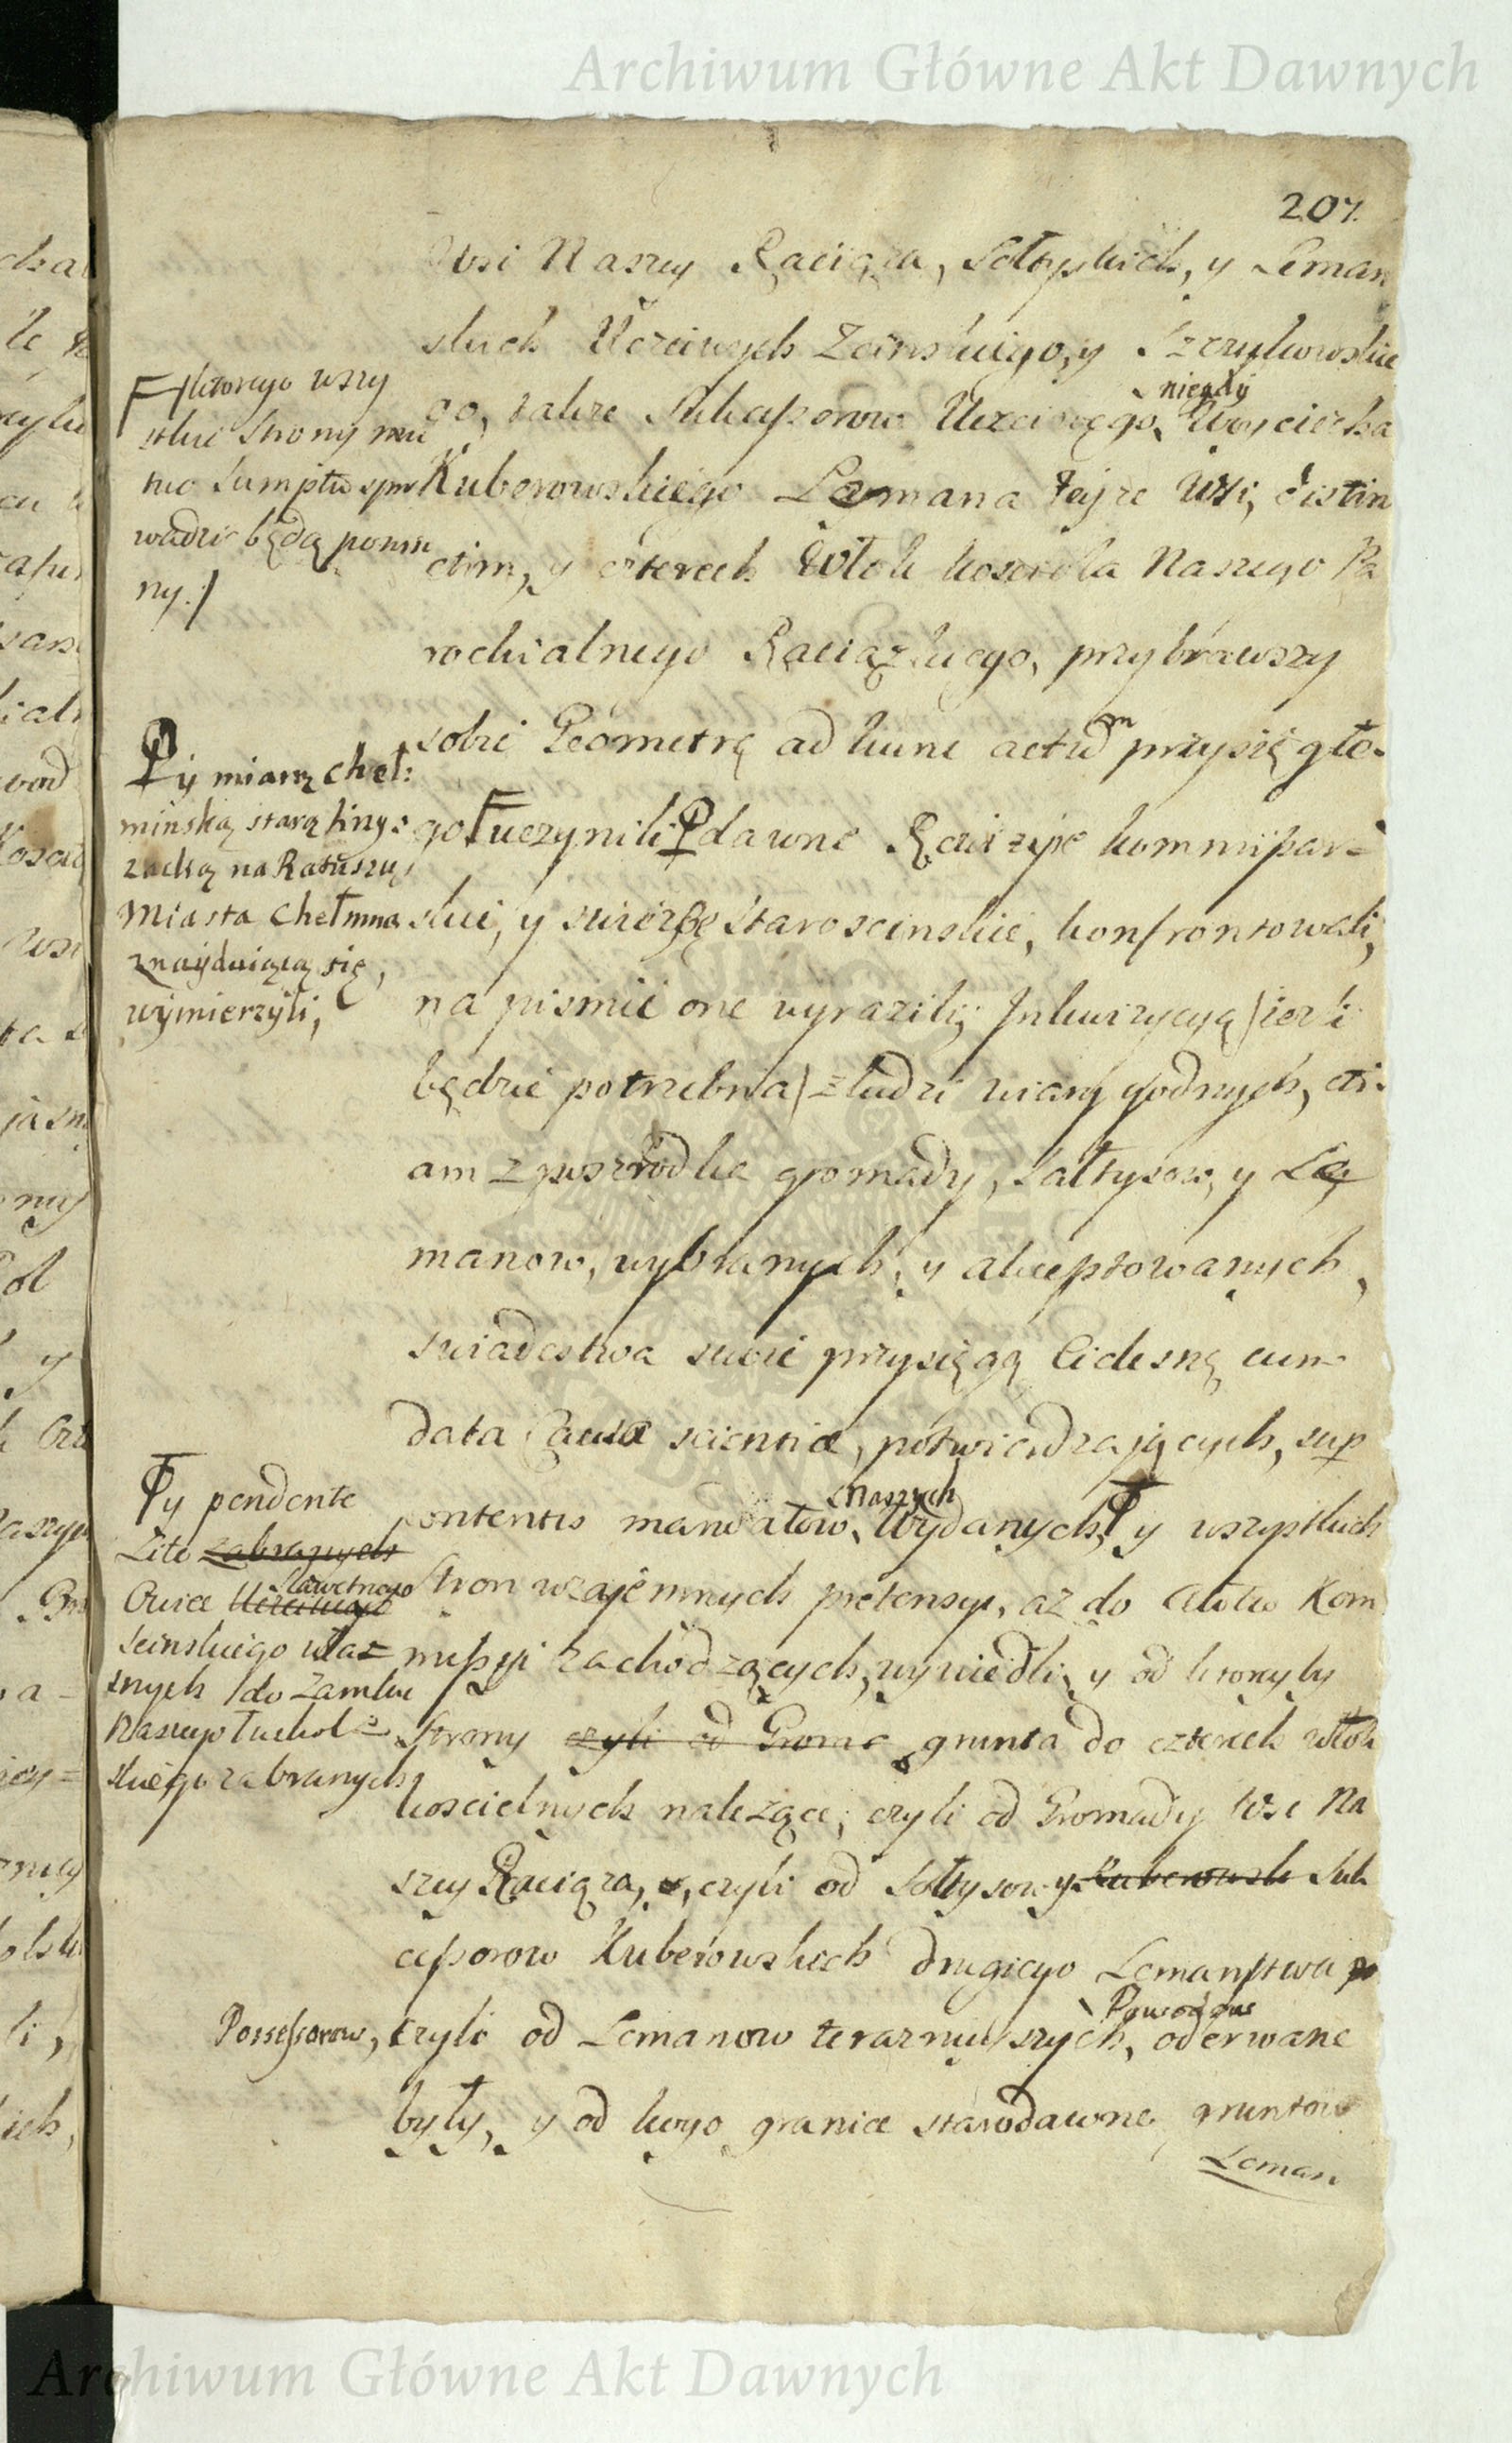 Archiwum Główne Akt Dawnych
207.
Wsi Naszey Raciąża, Sołtyskich, y Leman
skich Uczciwych Zeinskiego, y Szczukowskie
go, także Sukcessorow Uczciwego, niegdy Woyciecha
Kuberowskiego Lemana teyże Wsi, distin
ctim, y czterech Włok kosciola Naszego Pa
rochialnego Raciązkiego, przybrawszy
sobie Geometrę ad hunc actum przysięgłe-
go uczynili dawne Rewizye kommissar=
skie, y swieże Staroscinskie, konfrontowali,
na pismie one wyrazili, Inkwizycyą /ieżli
będzie potrzebna/ z ludzi wiary godnych, eti-
am z poszrodka gromady, Sołtysow, y Le
manow, wybranych, y akceptowanych,
swiadectwa swoie przysięgą Cielesną cum
data Causa scientiæ, potwierdzaiących, sup
contentis mandatow, Naszych Wydanych, y wszystkich
Stron wzaiemnych pretensyi, aż do Aktu Kom
missyi zachodzących, wywiedli, y od ktoryby
Strony czyli od Groma grunta do czterech włok
koscielnych należące, czyli od Gromady Wsi Na
szey Raciąża, czyli od Sołtysow y Kuberowsk Suk
cessorow Kuberowskich drugiego Lemanstwa
Possessorow, czyli od Lemanow teraznieyszych, Pomienione oderwane
były, y od kogo granice starodawne gruntow
Leman
/ktorego wszy
stkie Strony
Sumptu spro
wadzic będą powin
ny./
y miarą cheł:
minską starą
na Ratuszu
Miasta Chełmna
znayduiącą się,
wymierzyli,
y pendente
Lite zabranych
Owiec Uczciwego Sławetnego
Zeinskiego włas=
snych /do Zamku
Naszego Tuchol=
skiego zabranych
Archiwum Główne Akt Dawnych